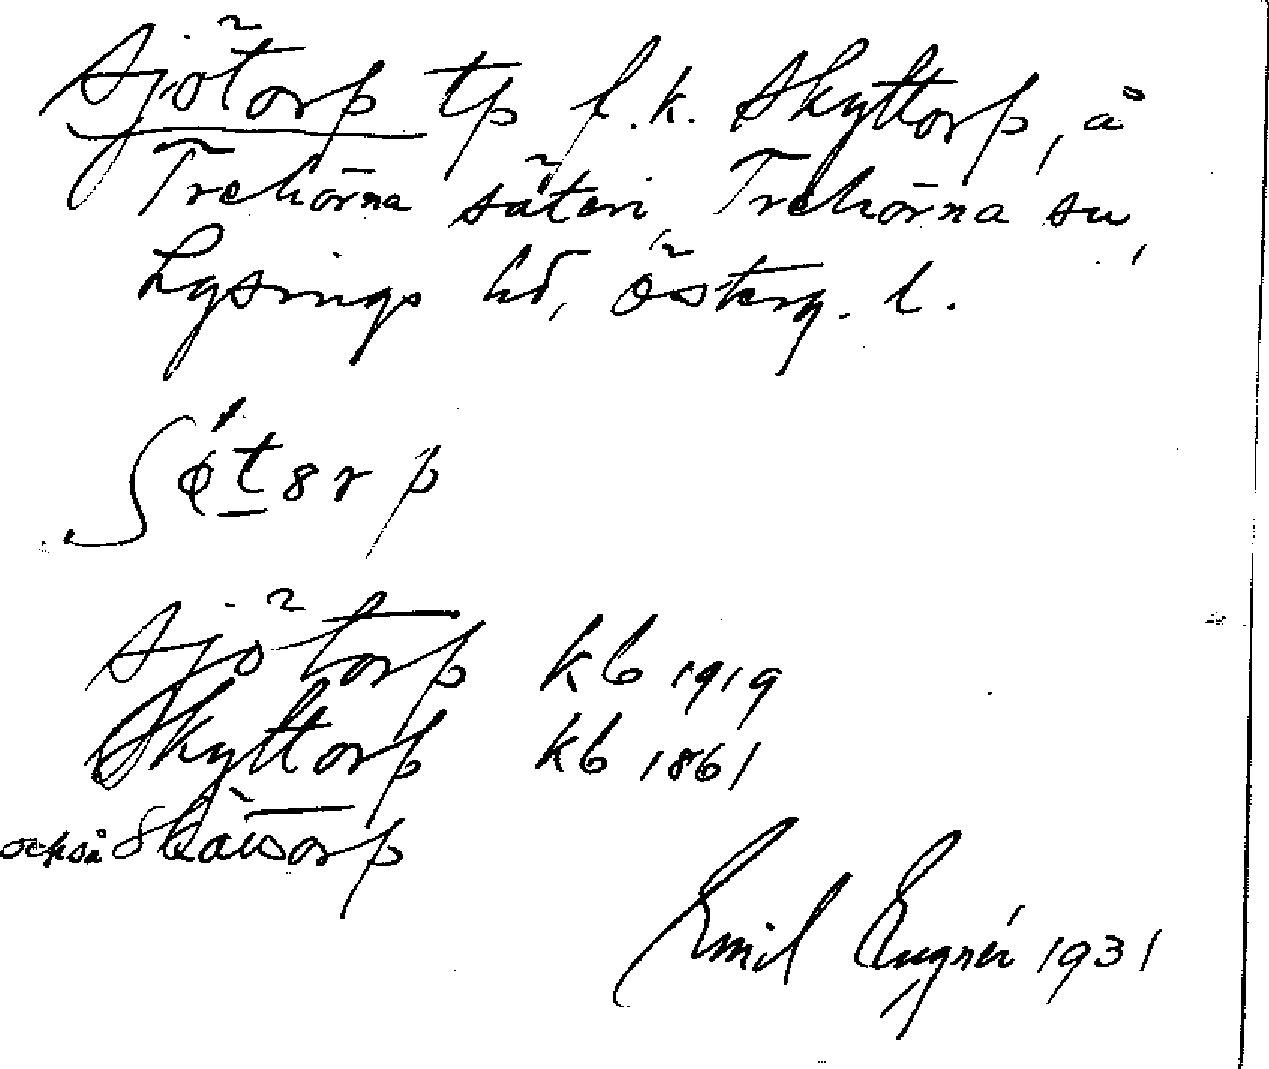 Sjötorp tp f.k. Skyttorp, å
Trehörna säteri, Trehörna sn,
Lysings hd, Österg. l.
ʃǿt8rp
Sjötorp kb 1919
Skyttorp kb 1861
också
Emil 1931